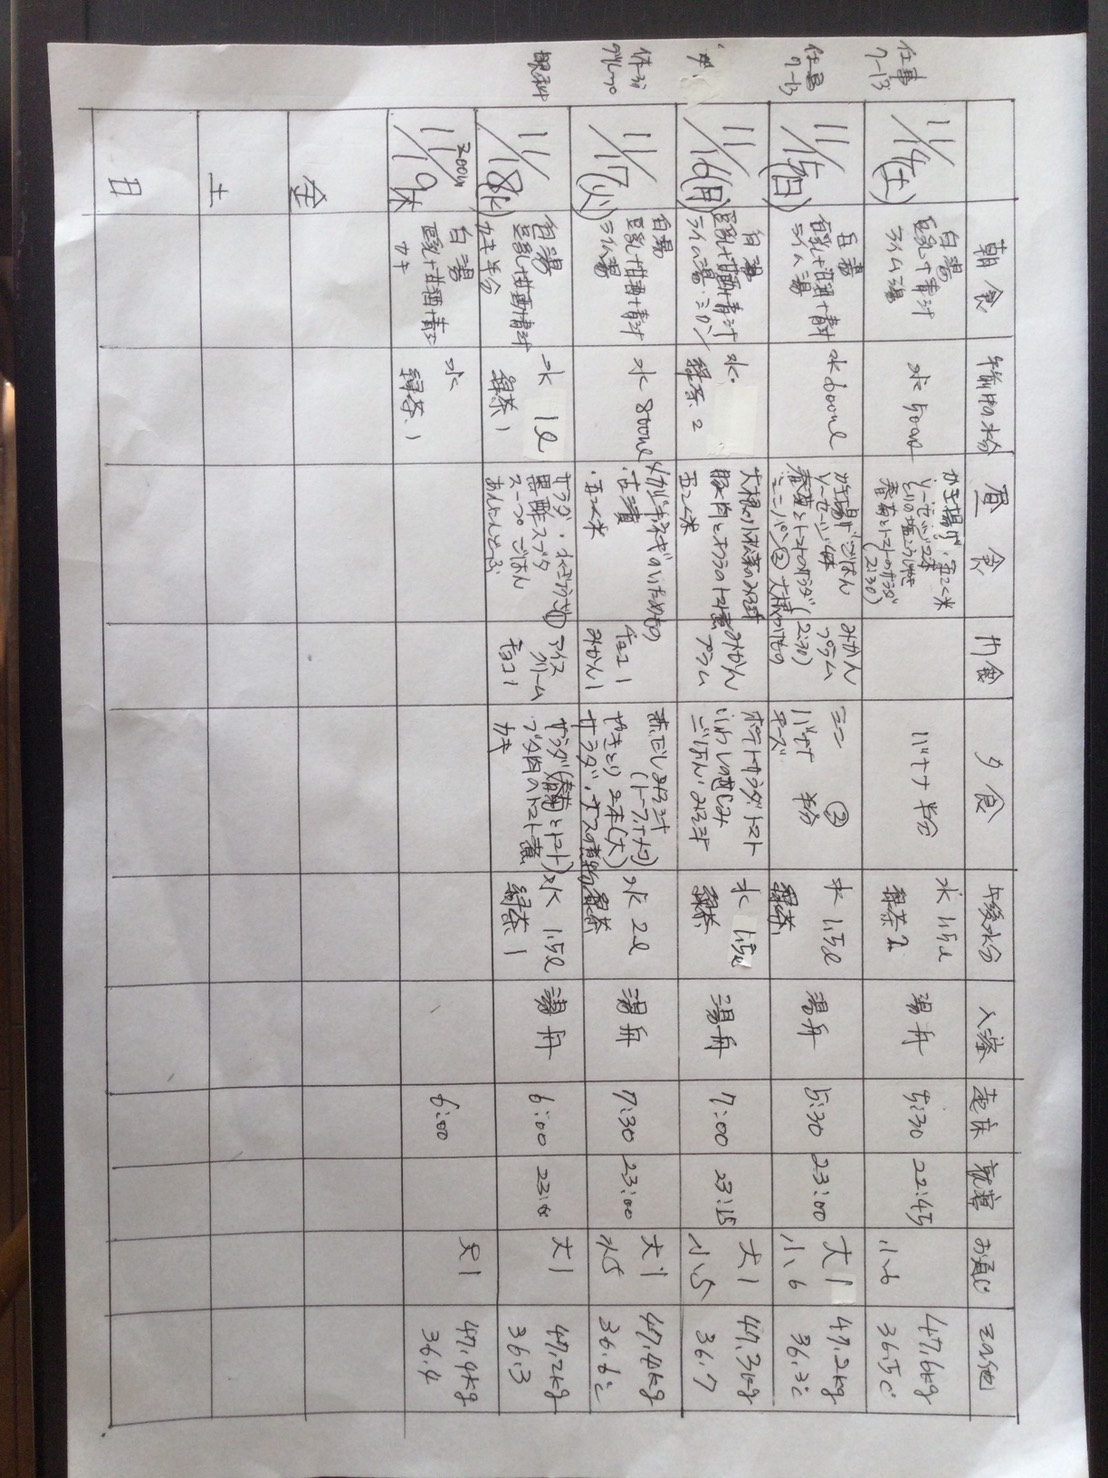 朝食 午前中の水分 昼食 片食 夕食 午後水分 入浴 起床 就寝 お通じ その他
仕事
7-13
11/14(土)
白湯
豆乳+青汁
ライム湯
水500ml
かき揚げ・五こく米
ソーセージ2本
とりの塩こうじ焼き
春菊とトマトのサラダ
(2:30)
バナナ半分
水1.5l
緑茶2
湯舟
5:30
22:45
小6
47.6kg
36.5℃
仕事
7-13
11/15(日)
白湯
豆乳+甘酒+青汁
ライム湯
水600ml
かき揚げごはん
ソーセージ4本
春菊とトマトのサラダ(2:30)
ミニパン② 大根のつけもの
みかん
プラム
ミニ②
バナナ 半分
チーズ
水1.5l
緑茶1
湯舟
5:30
23:00
大1
小6
47.2kg
36.3℃
11/16(月)
白湯
豆乳+甘酒+青汁
ライム湯・ミカン
水・
緑茶2
大根の小松菜のみそ汁
豚肉とオクラのトマト煮
五こく米
みかん
プラム
ポテトサラダ、トマト
いわしの甘じみ
ごはん・みそ汁
水1.5l
緑茶
湯舟
7:00
23:15
大1
小5
47.3kg
36.7
体ヨガ
グループ
11/17(火)
白湯
豆乳+甘酒+青汁
ライム湯
水800ml
メカジキネギのいためもの
・古漬
・五こく米
チョコ1
みかん1
赤だしみそ汁
(トーフ、ナメコ)
やきとり2本(大)
サラダ、ナスの煮物
水2l
緑茶
湯舟
7:30
23:00
大1
小5
47.4kg
36.6℃
眼科
11/18(水)
白湯
豆乳+甘酒+青汁
カキ半分
水1l
緑茶1
サラダ・
黒酢スブタ
スープ ごはん
あんにんどうふ
アイス
クリーム
チョコ1
サラダ(春菊とトマト)
ブタ肉のトマト煮
カキ
水1.5l
緑茶1
湯舟
6:00
23:00
大1
47.2kg
36.3
11/19木
200ml
白湯
豆乳+甘酒+青汁
カキ
水
緑茶、1
6:00
大1
47.4kg
36.4
金
土
日